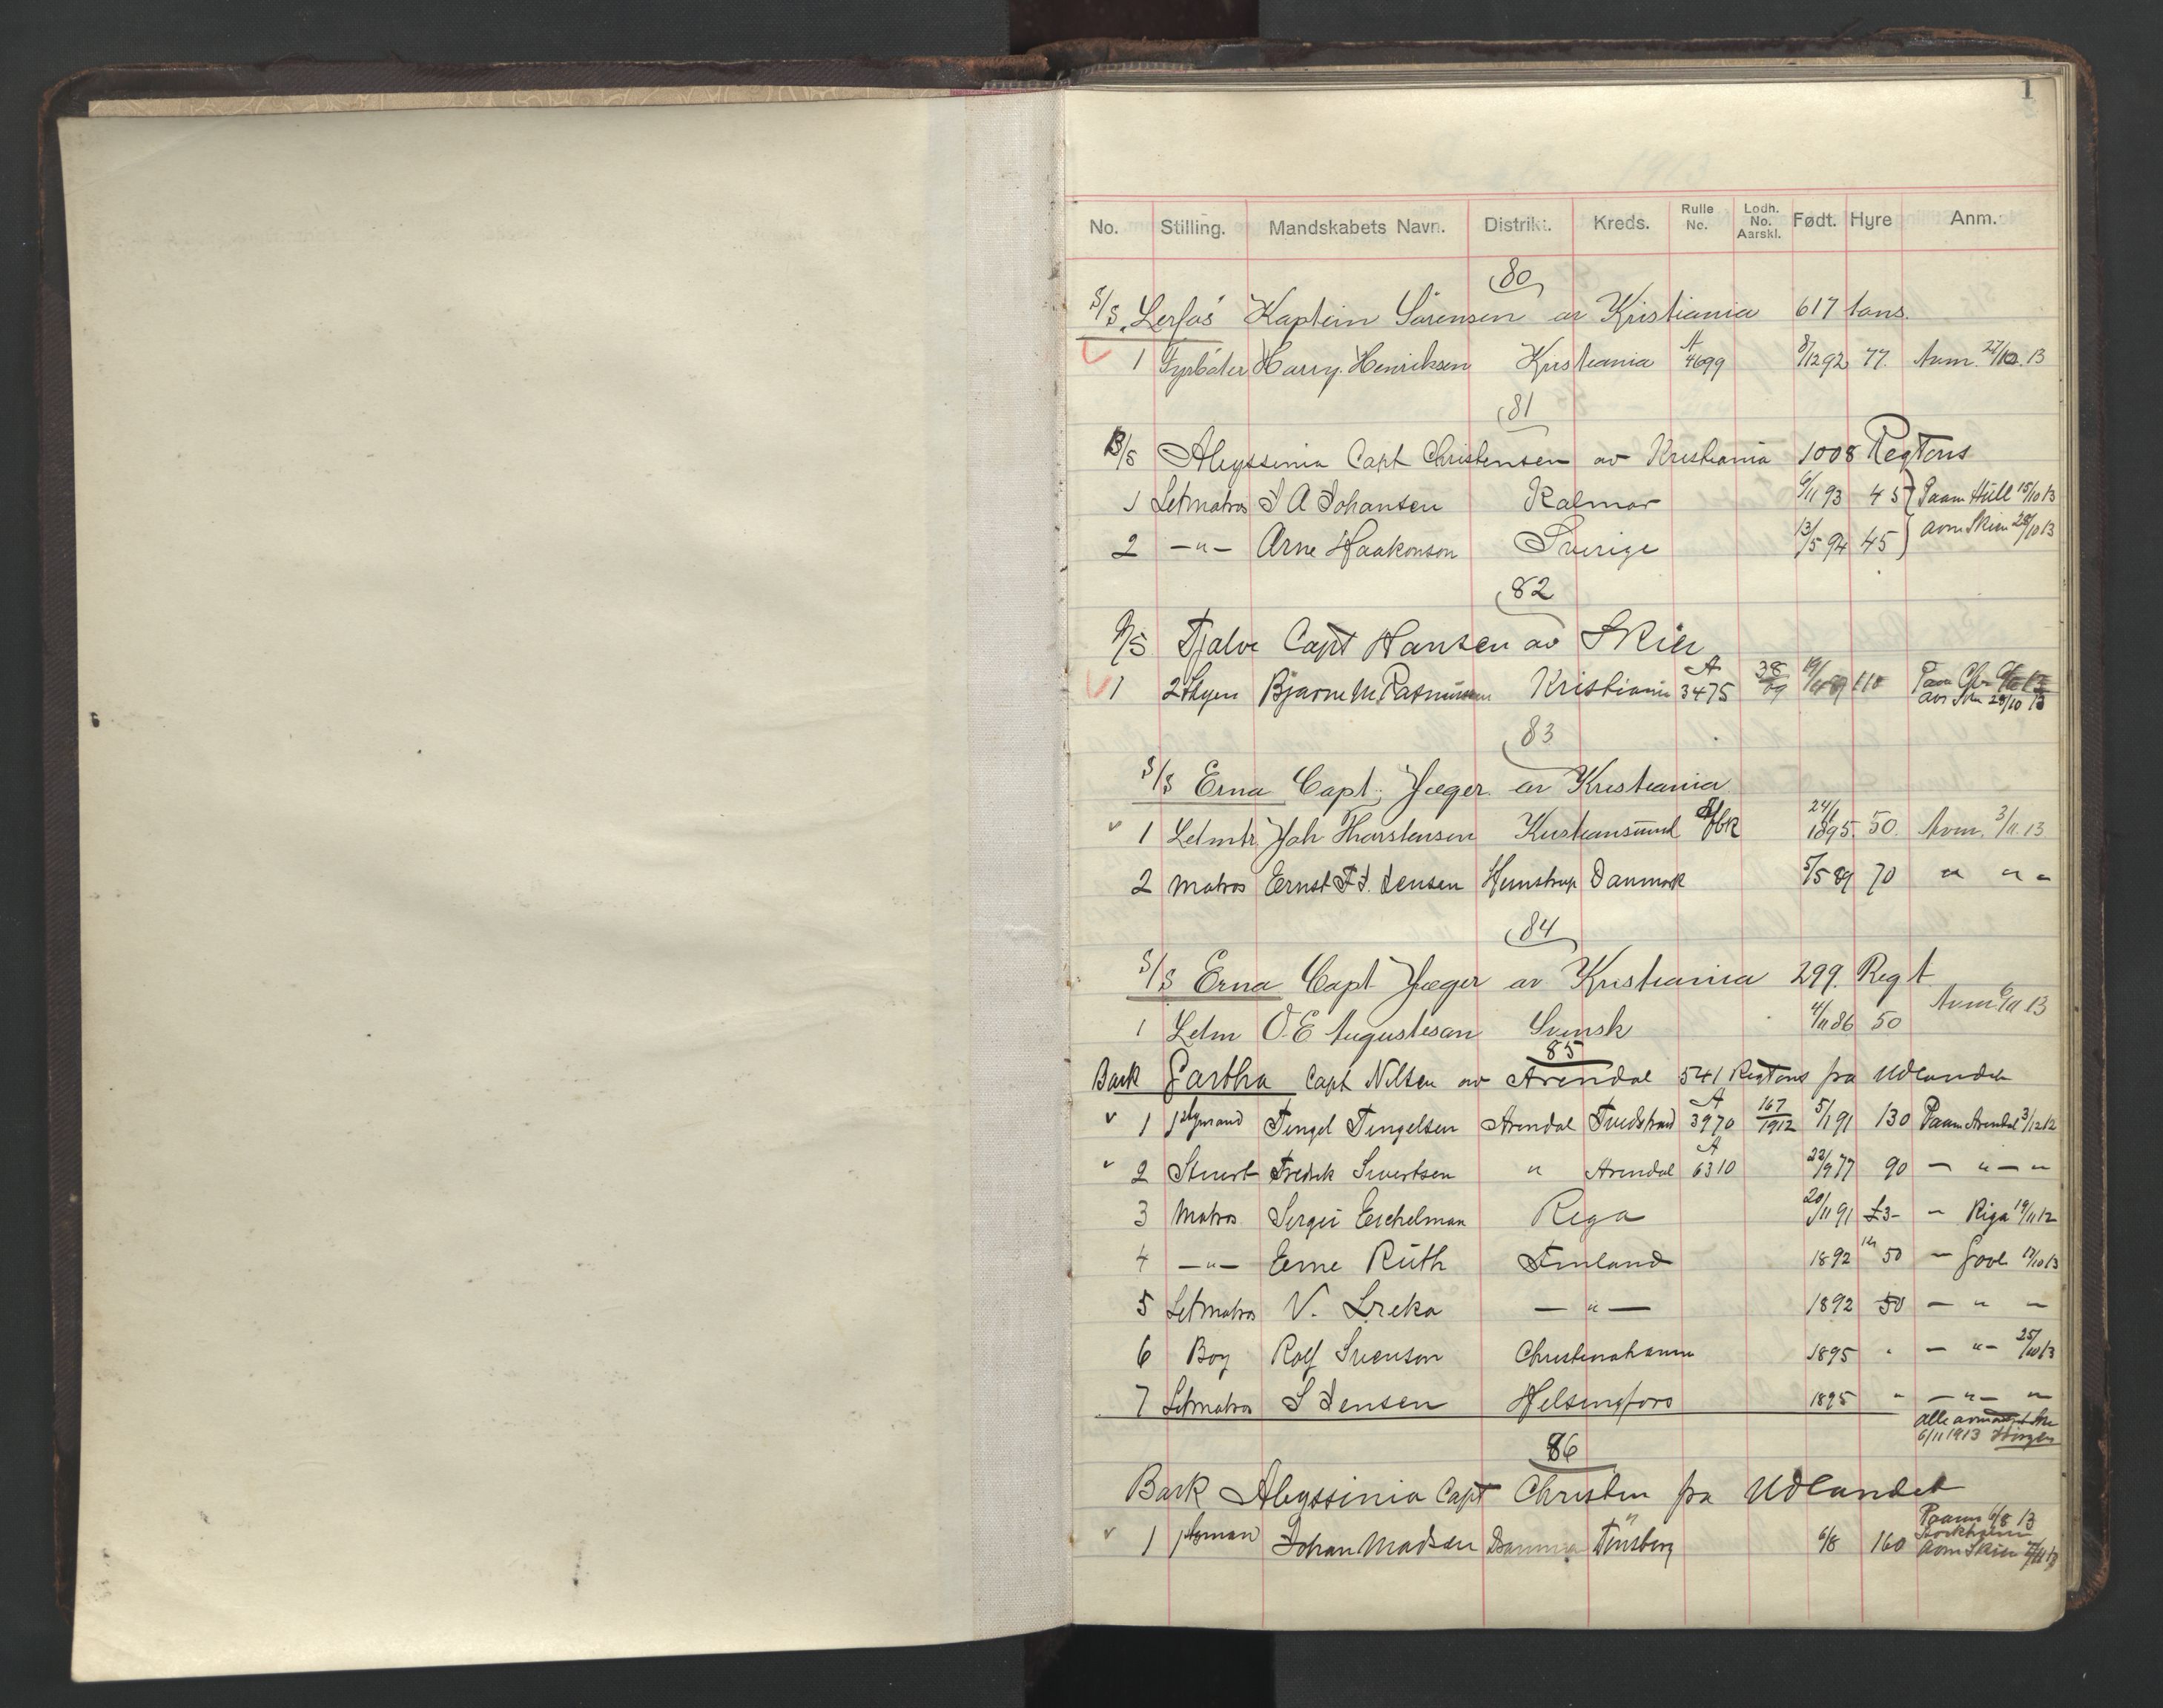 1
No. Stilling. Mandskabets Navn. Distrikt. Kreds. Rulle No. Lodh. No. Aarskl. Født. Hyre Anm.
80
S/S Lerfos Kaptein Sörensen av Kristiania 617 tons.
1 Fyrböter Harry Henriksen Kristiania A 4699 8/12 92 77. Avm. 27/10. 13
81
B/S Abyssinia Capt Christensen av Kristiania 1008 RegTons
1 Letmatros J A Johansen Kalmar 6/11 93 45 Paam Hull 15/10 13
2 -"- Arne Haakonson Sverige 13/5 94 45 avm Skien 28/10 13
82
S/S Tjalve Capt Hansen av Skien
1 2 Stym Bjarne M Rasmussen Kristiania A 3475 38/09 110 29/10 13
83
S/S Erna Capt; Jæger. av Kristiania
1 Letmtr Joh Thorstensen Kristiansund 24/1 1895. 50. Avm. 3/11. 13
2 Matros Ernst F. J. Jensen Hemstrup Danmark 5/5 89 70 " " "
84
S/S Erna Capt Jæger av Kristiania 299. Reg t
1 Letm O. E Augustesan Svensk 4/11 86 50 Avm 6/11 13
85
Bark Gartha Capt Nilsen av Arendal 541 RegTons fra Udlandet
1 1 Stymand Tengel Tengelsen Arendal Tvedstrand A 3970 167/1912 5/1 91 130 Paam Arendal 3/12 12
2 Stuert Fredrik Sivertsen " Arendal A 6310 22/9 77 90 - " - "
3 Matros Sergei Eschelman Rega 20/11 91 £3- - Riga 19/11 12
4 -"- Erne Rüth Finland 1892 50 - Govl 17/10 13
5 Letmatros V. Lreka -"- 1892 50 - " -
6 Boy Rolf Svenson Christinahamn 1895 " - "- 25/10 13
7 Letmatros S Jensen Helsingfors 1895 " -"- "
Alle avmønst
6/11 1913
86
Bark Abyssinia Capt Christen fra Udlandet
1 1 Styman Johan Madsen Tönsberg 6/8 160 Paam 6/8 13 Stockholm avm Skien